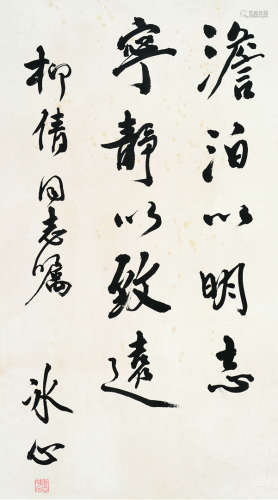 澹泊以明志
寧靜以致遠
柳倩同志嘱
冰心